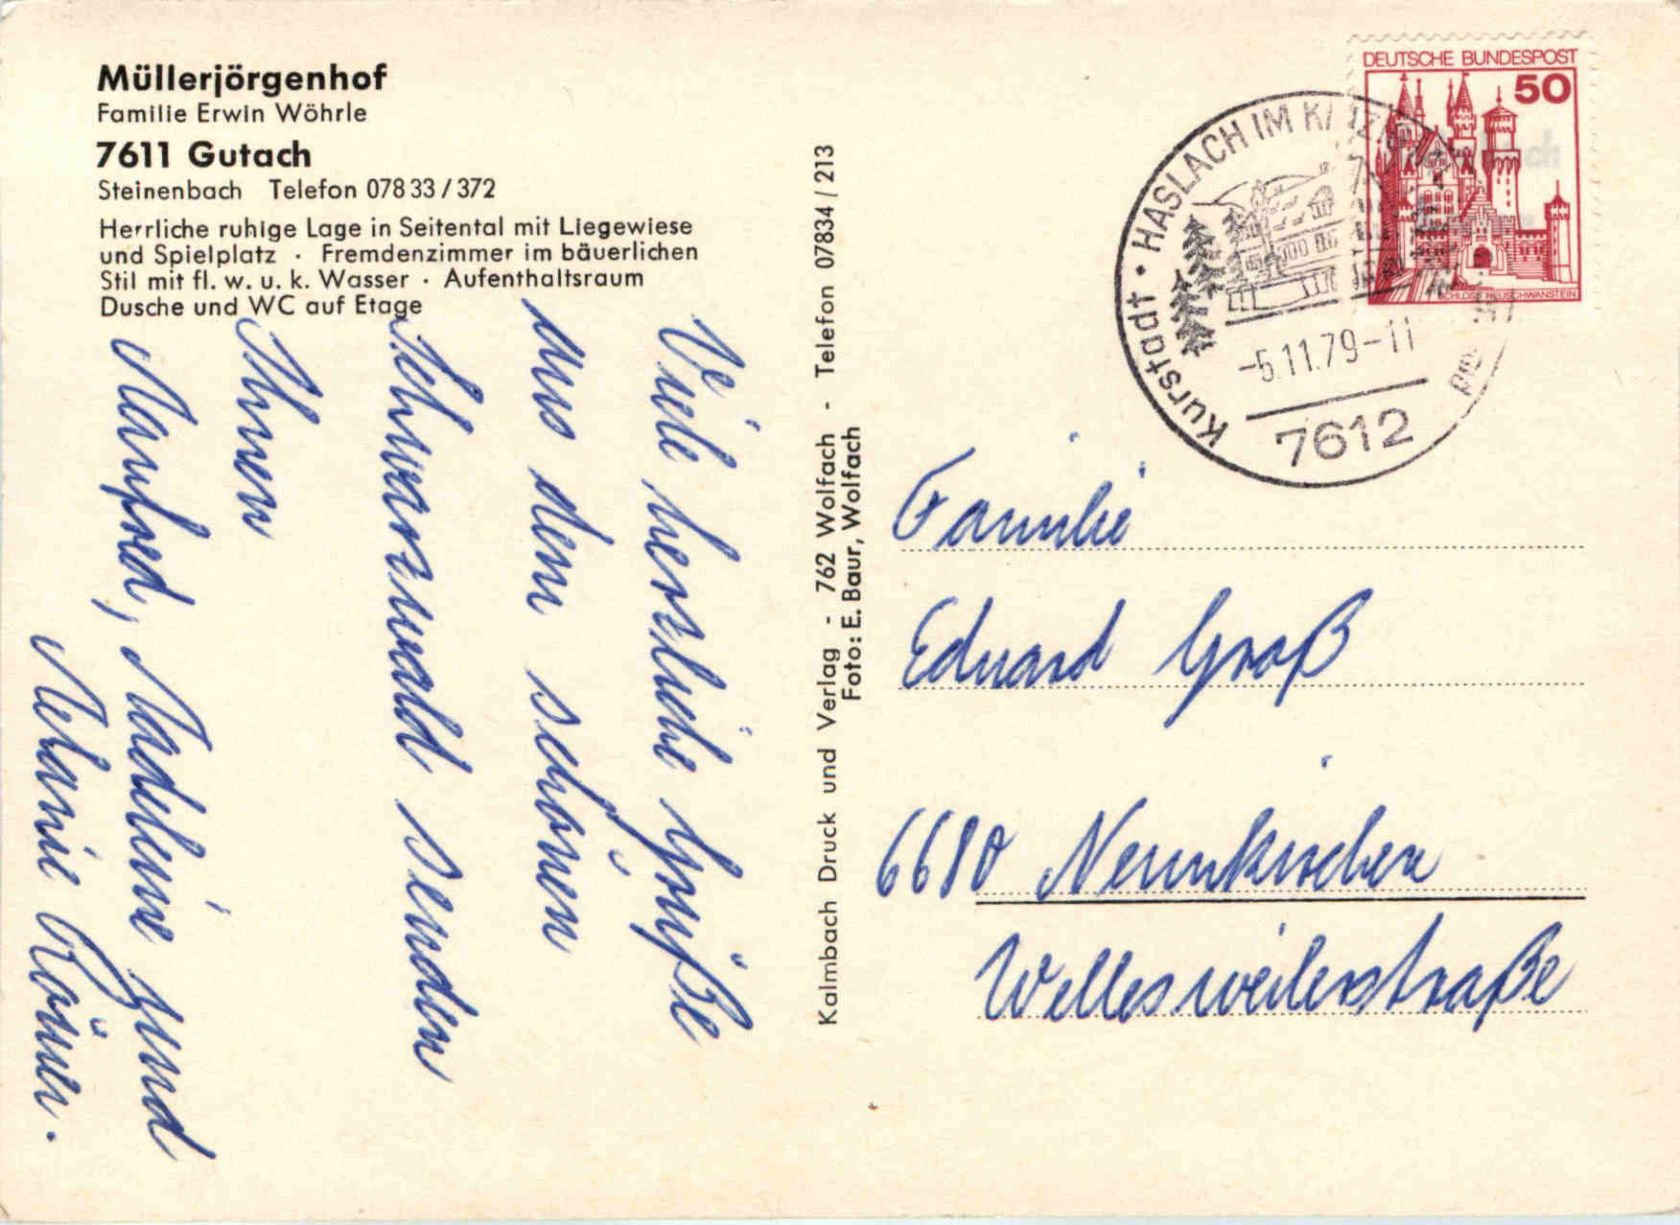 Müllerjörgenhof
Familie Erwin Wöhrle
7611 Gutach
Steinenbach Telefon 078 33 / 372
Herrliche ruhige Lage in Seitental mit Liegewiese
und Spielplatz · Fremdenzimmer im bäuerlichen
Stil mit fl. w. u. k. Wasser · Aufenthaltsraum
Dusche und WC auf Etage
Viele herzliche Grüße
aus dem schönen
Schwarzwald senden
Ihnen
Manfred, Madeleine und
Melanie
Kalmbach Druck und Verlag - 762 Wolfach - Telefon 07834 / 213
Foto: E. Baur, Wolfach
DEUTSCHE BUNDESPOST
50
SCHLOSS NEUSCHWANSTEIN
Kurstadt • HASLACH IM
-5.11.79-11
7612
Familie
Eduard Groß
6680 Neunkirchen
Wellesweilerstraße